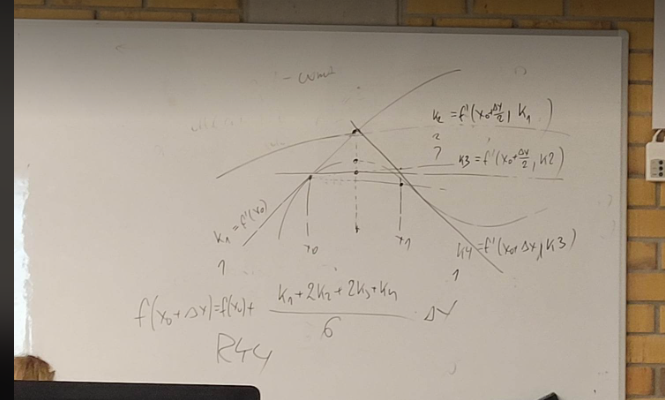 k₂ = f'(x₀+Δx/2, k₁)
2
k3 = f'(x₀+Δx/2, k2)
k₁ = f'(x₀)
1
x₀
x₁
k4 = f'(x₀+Δx, k3)
1
f(x₀+Δx)=f(x₀)+ k₁+2k₂+2k₃+k₄ / 6 Δx
R44